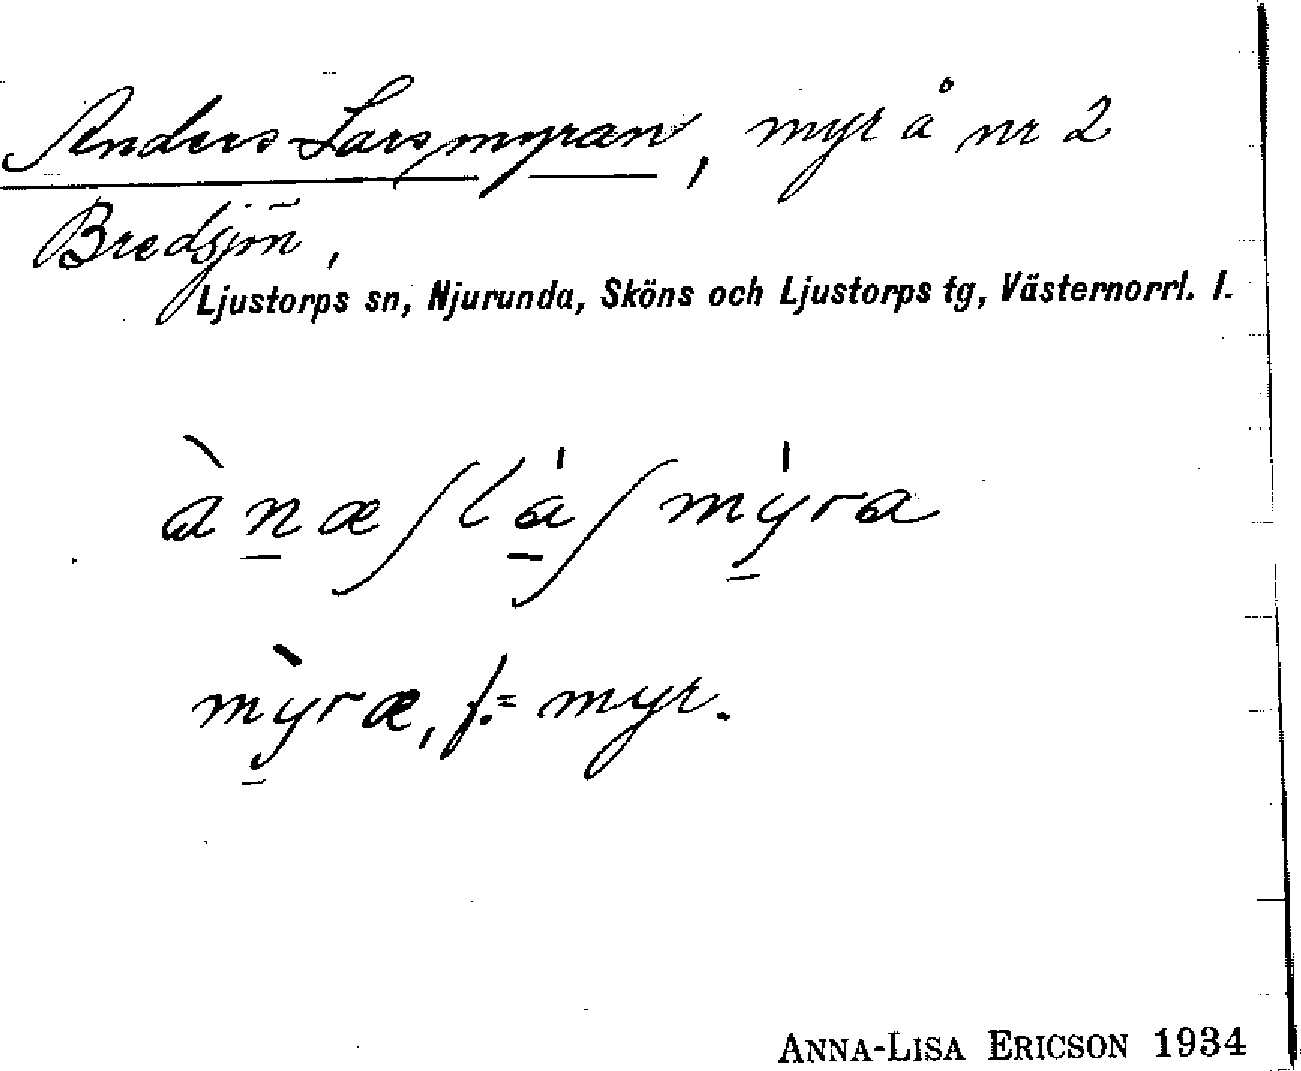 Anders-Larsmyran, myr å nr 2
Bredsjön,
Ljustorps sn, Njurunda, Sköns och Ljustorps tg, Västernorrl. l.
ànæʃláʃmýra
mỳræ, f. = myr.
ANNA-LISA ERICSON 1934